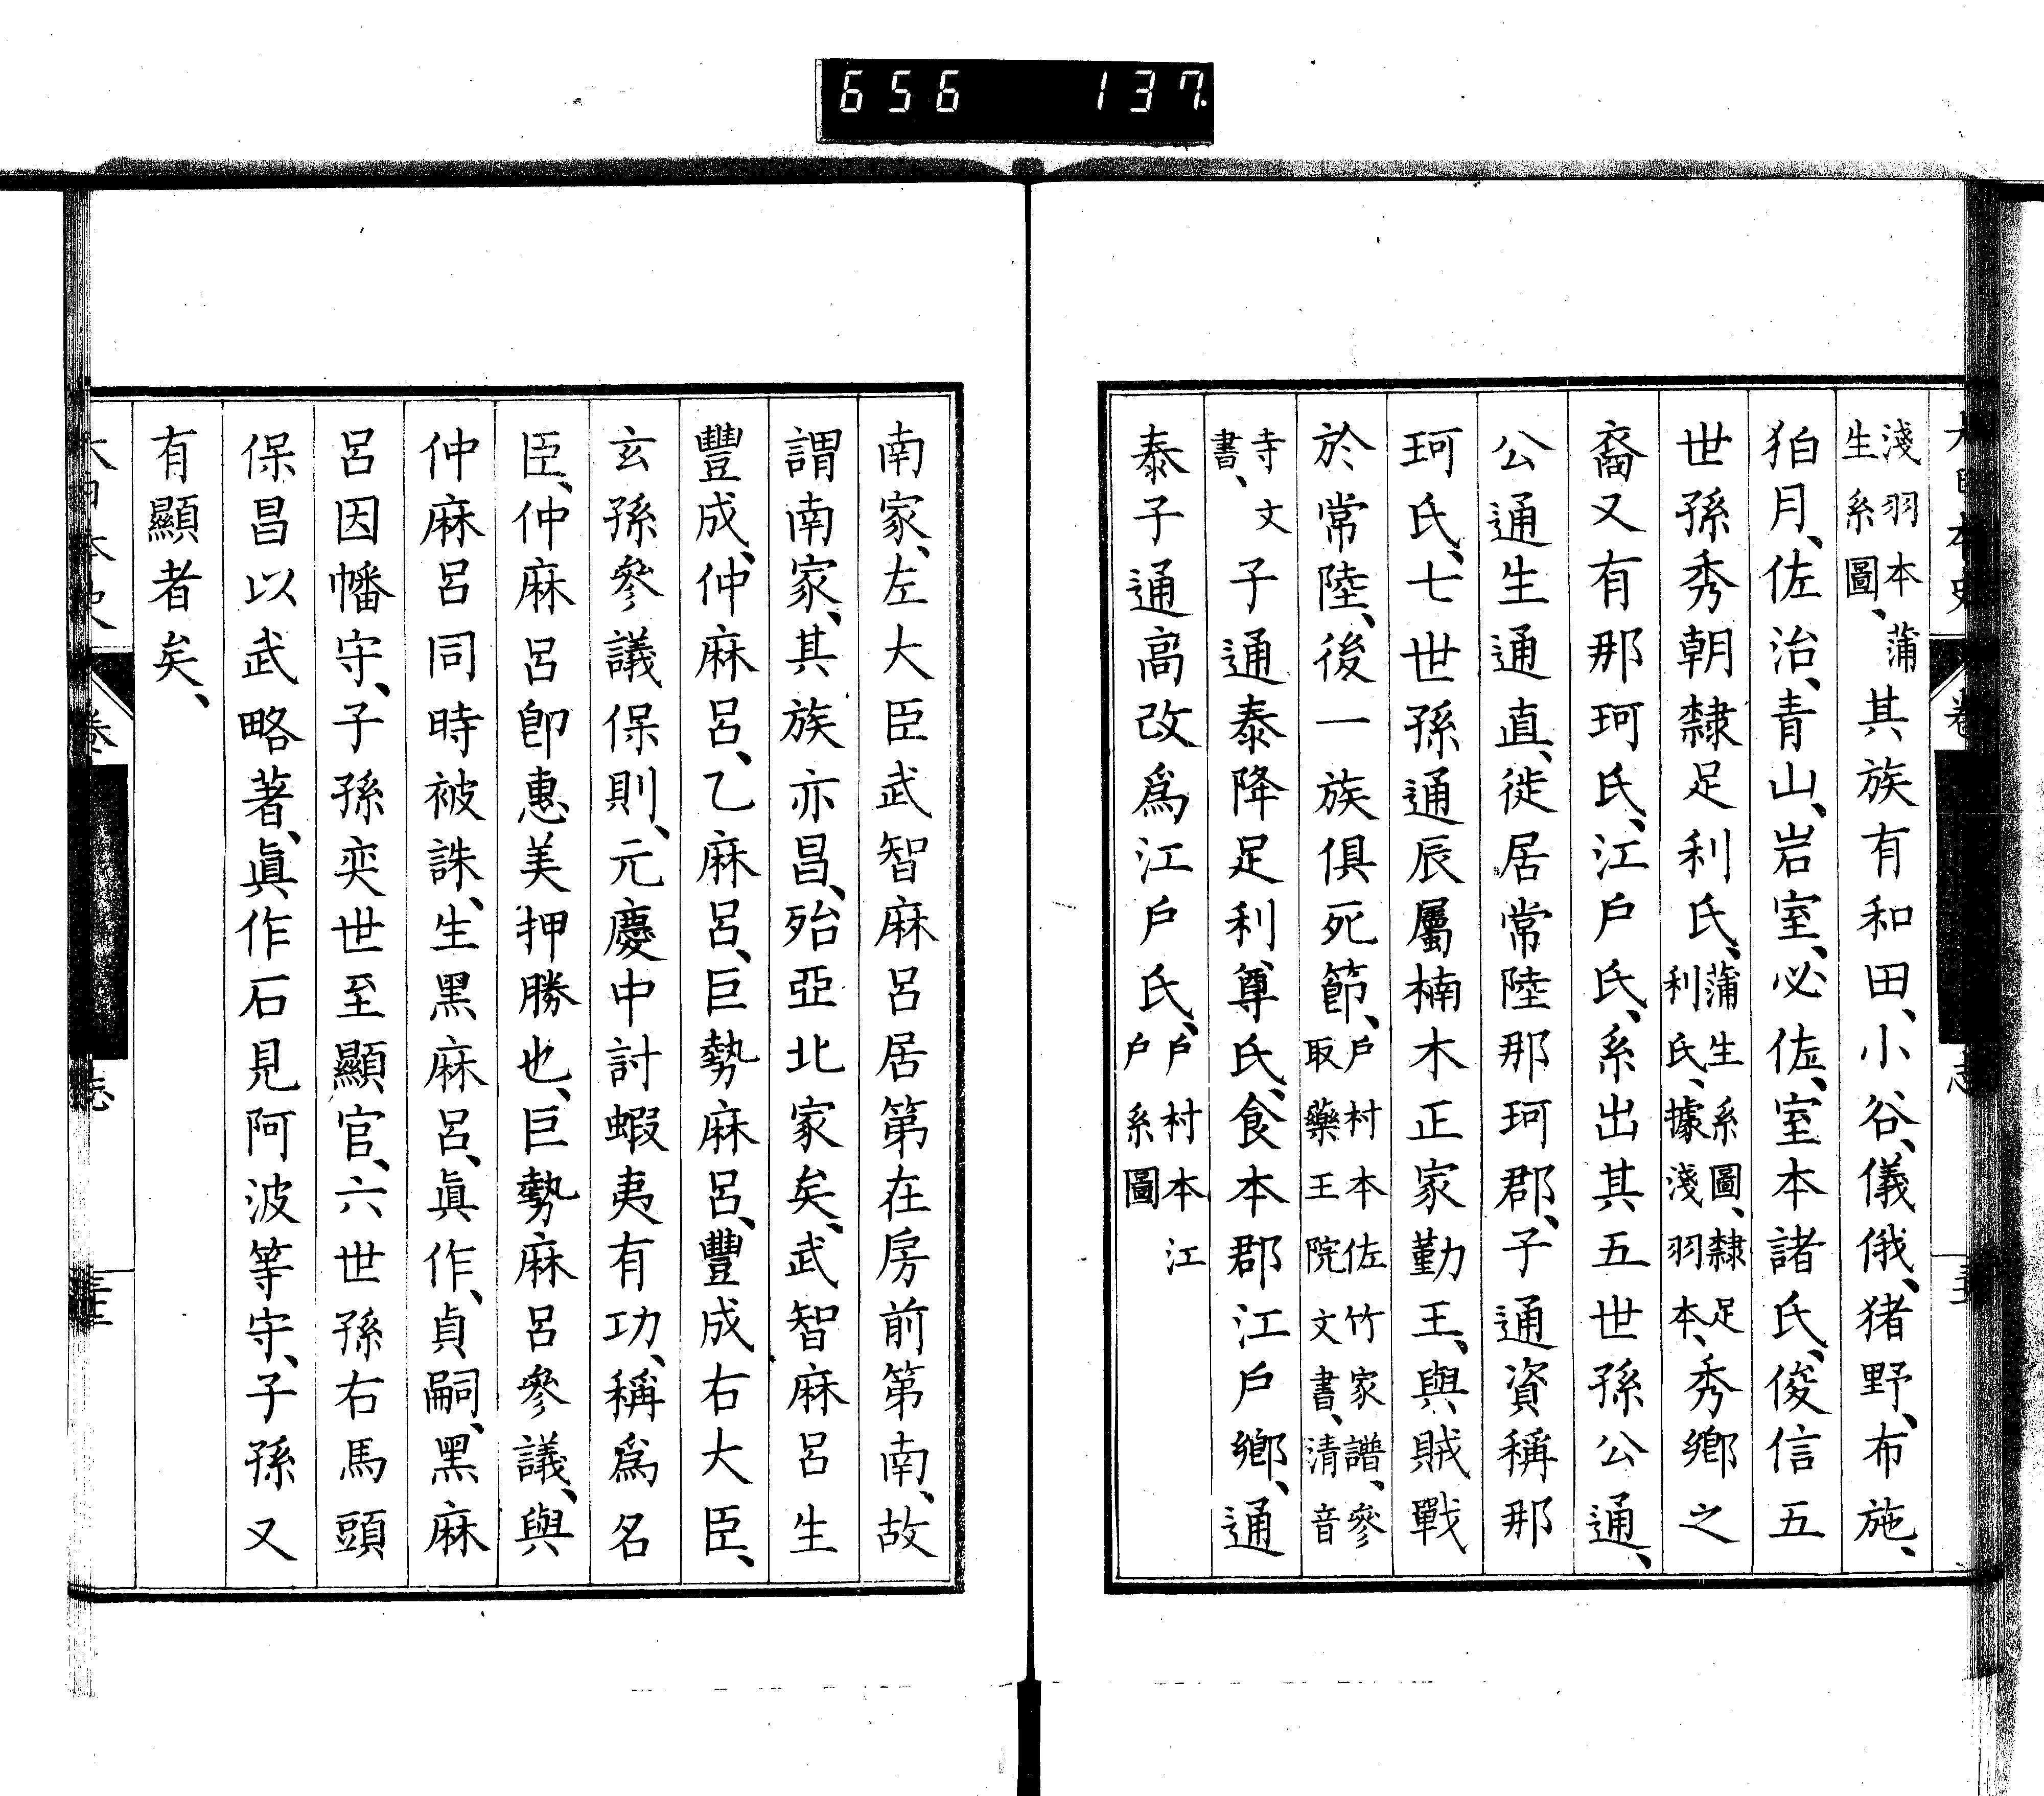 656 137
淺羽本蒲
生系圖、
其族有和田、小谷、儀俄、猪野、布施、
狛月、佐治、青山、岩室、必佐、室本諸氏、俊信五
世孫秀朝隷足利氏、
蒲生系圖、隷足
利氏、據淺羽本、
秀鄉之
裔又有那珂氏、江戶氏、系出其五世孫公通、
公通生通直、徙居常陸那珂郡、子通資稱那
珂氏、七世孫通辰屬楠木正家勤王、與賊戰
於常陸、後一族俱死節、
戶村本佐竹家譜、參
取藥王院文書、清音
寺文
書、
子通泰降足利尊氏、食本郡江戶鄉、通
泰子通高改爲江戶氏、
戶村本江
戶系圖
南家、左大臣武智麻呂居第在房前第南、故
謂南家、其族亦昌、殆亞北家矣、武智麻呂生
豐成、仲麻呂、乙麻呂、巨勢麻呂、豐成右大臣、
玄孫參議保則、元慶中討蝦夷有功、稱爲名
臣、仲麻呂卽惠美押勝也、巨勢麻呂參議、與
仲麻呂同時被誅、生黑麻呂、眞作、貞嗣、黑麻
呂因幡守、子孫奕世至顯官、六世孫右馬頭
保昌以武略著、眞作石見阿波等守、子孫又
有顯者矣、